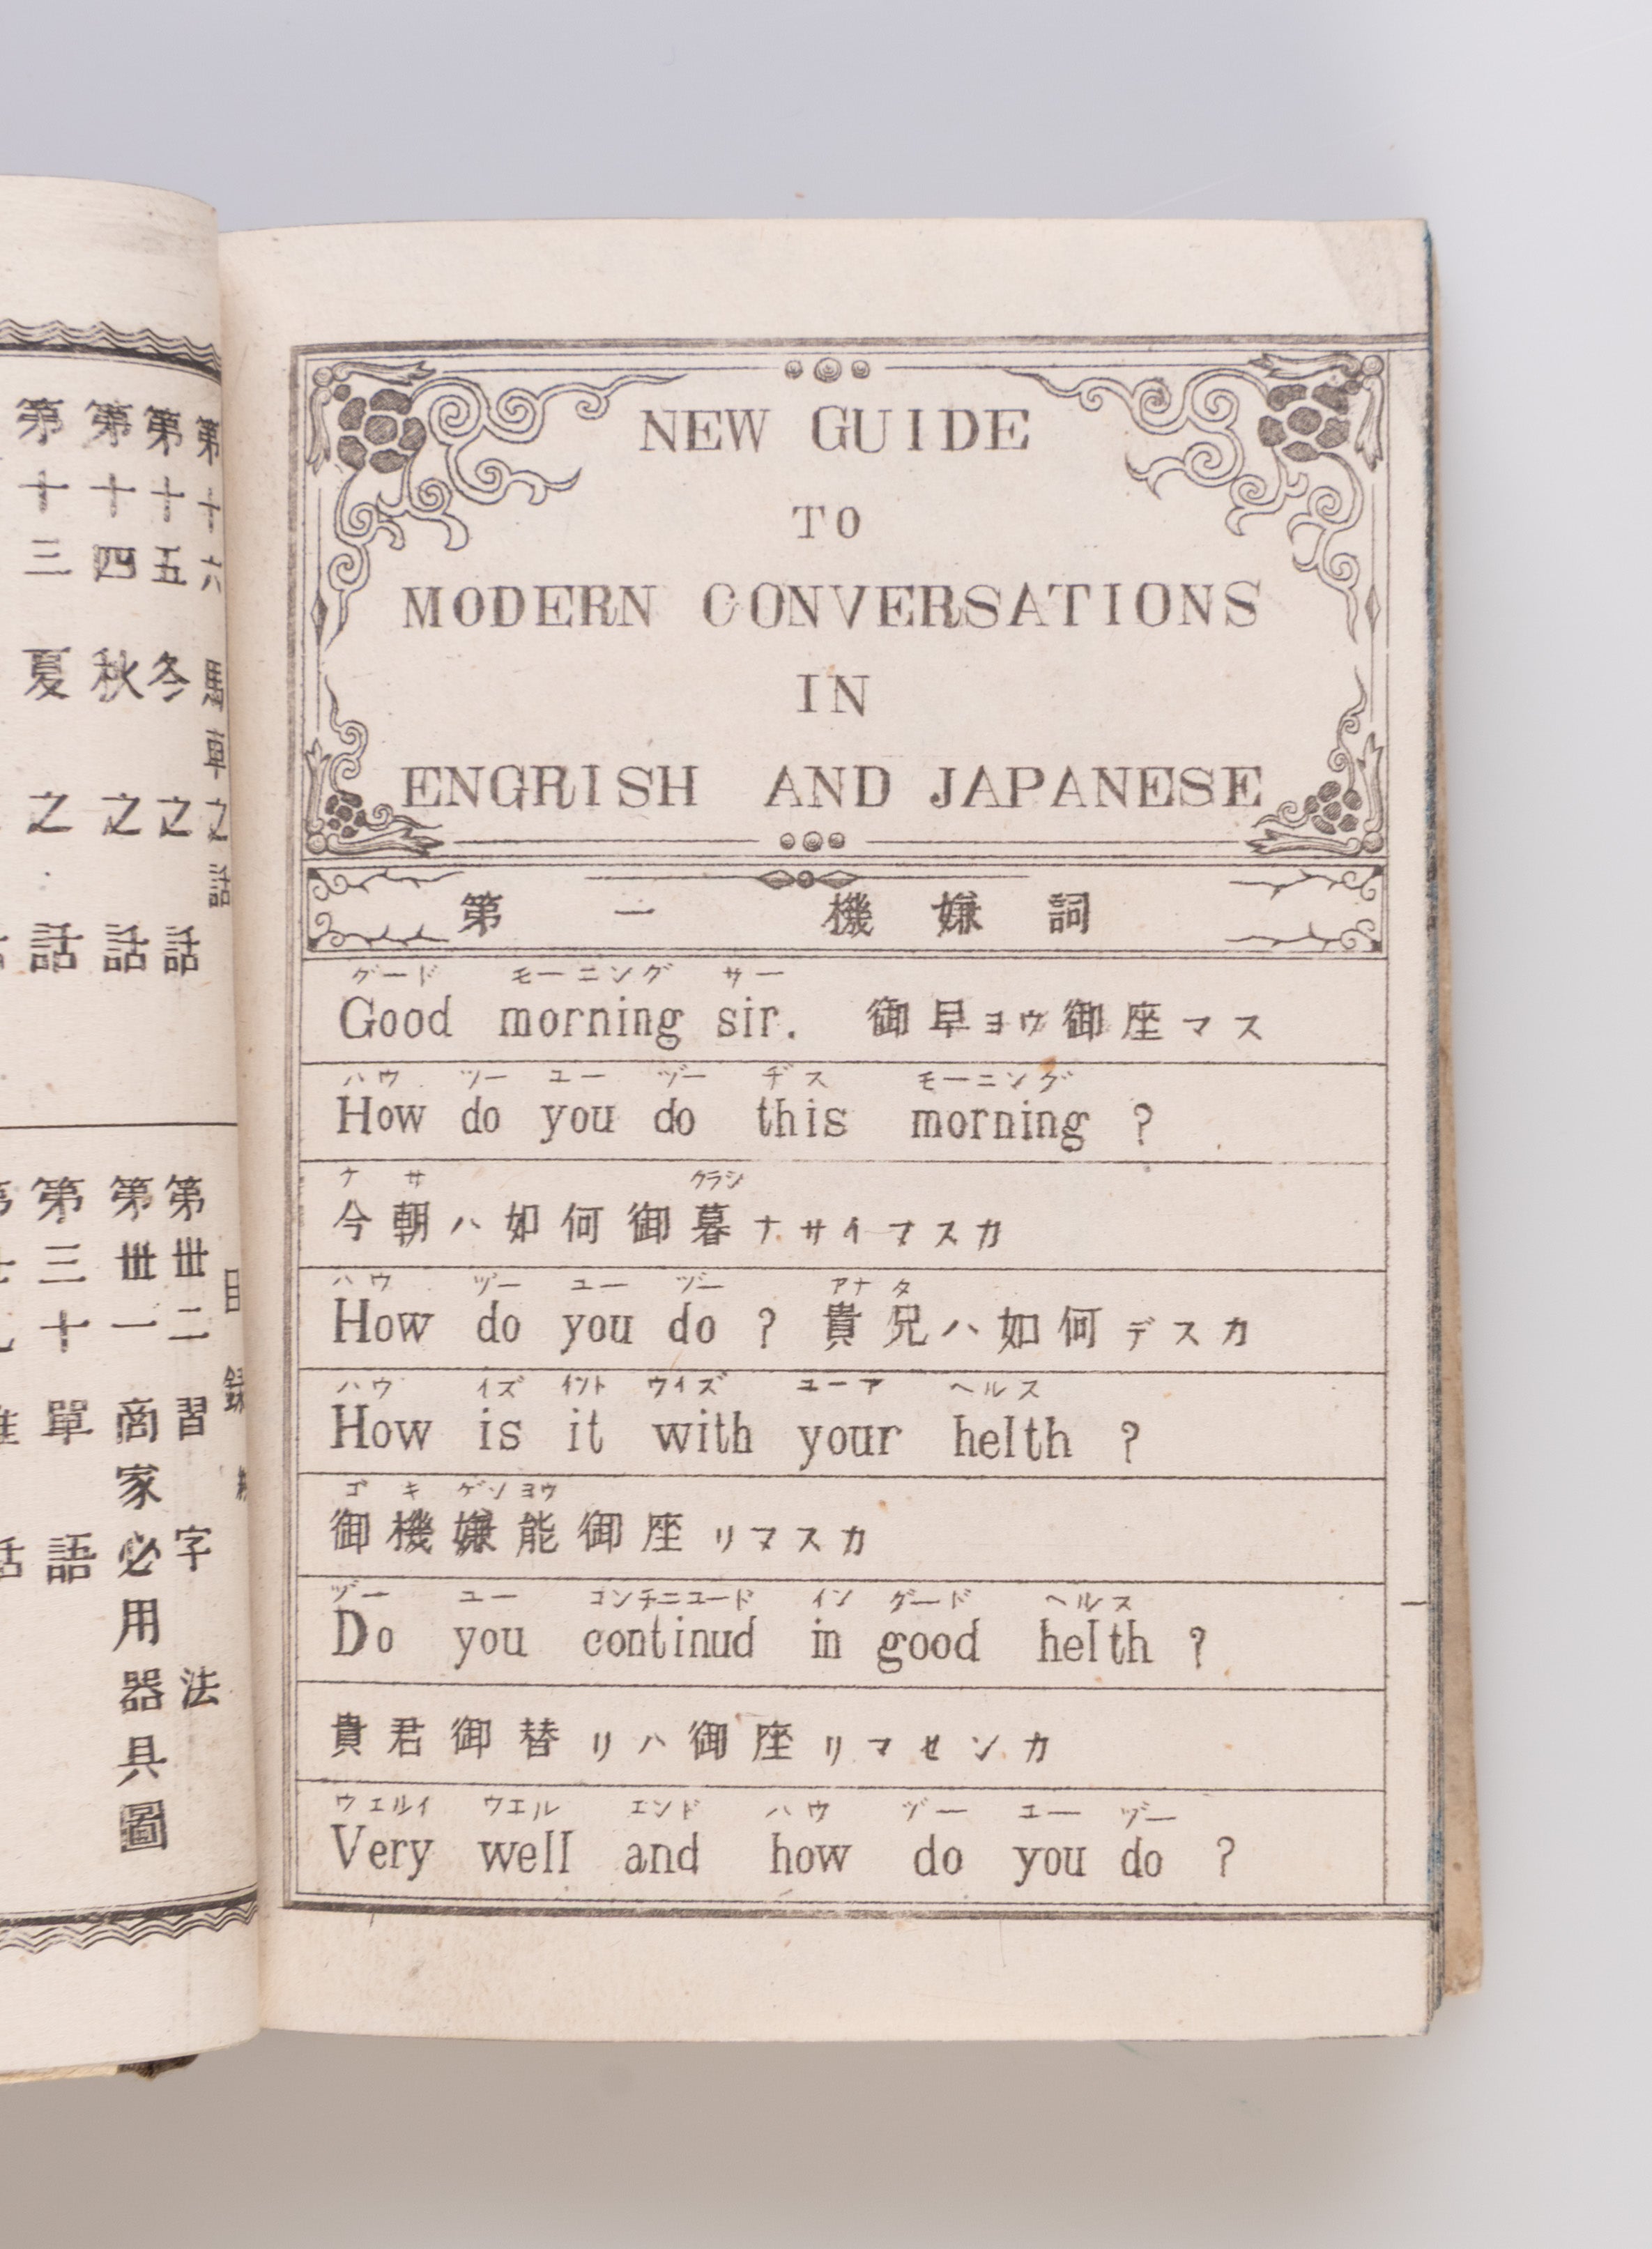 NEW GUIDE
TO
MODERN CONVERSATIONS
IN
ENGRISH AND JAPANESE
第一 機嫌詞
グード モーニング サー
Good morning sir. 御早ヨウ御座マス
ハウ ツー ユー ヅー ヂス モーニング
How do you do this morning ?
ケ サ クラシ
今朝ハ如何御暮ナサイマスカ
ハウ ヅー ユー ヅー アナタ
How do you do ? 貴兄ハ如何デスカ
ハウ イズ イット ウイズ ユーア ヘルス
How is it with your helth ?
ゴ キ ゲン ヨウ
御機嫌能御座リマスカ
ヅー ユー コンチニユード イン グード ヘルス
Do you continud in good helth ?
貴君御替リハ御座リマセンカ
ウエルイ ウエル エンド ハウ ヅー ユー ヅー
Very well and how do you do ?
一
第十六 馬車之話
第十五 冬之話
第十四 秋之話
第十三 夏之話
第卅二 習字法
第卅一 商家必用器具圖
第三十 單語
目録